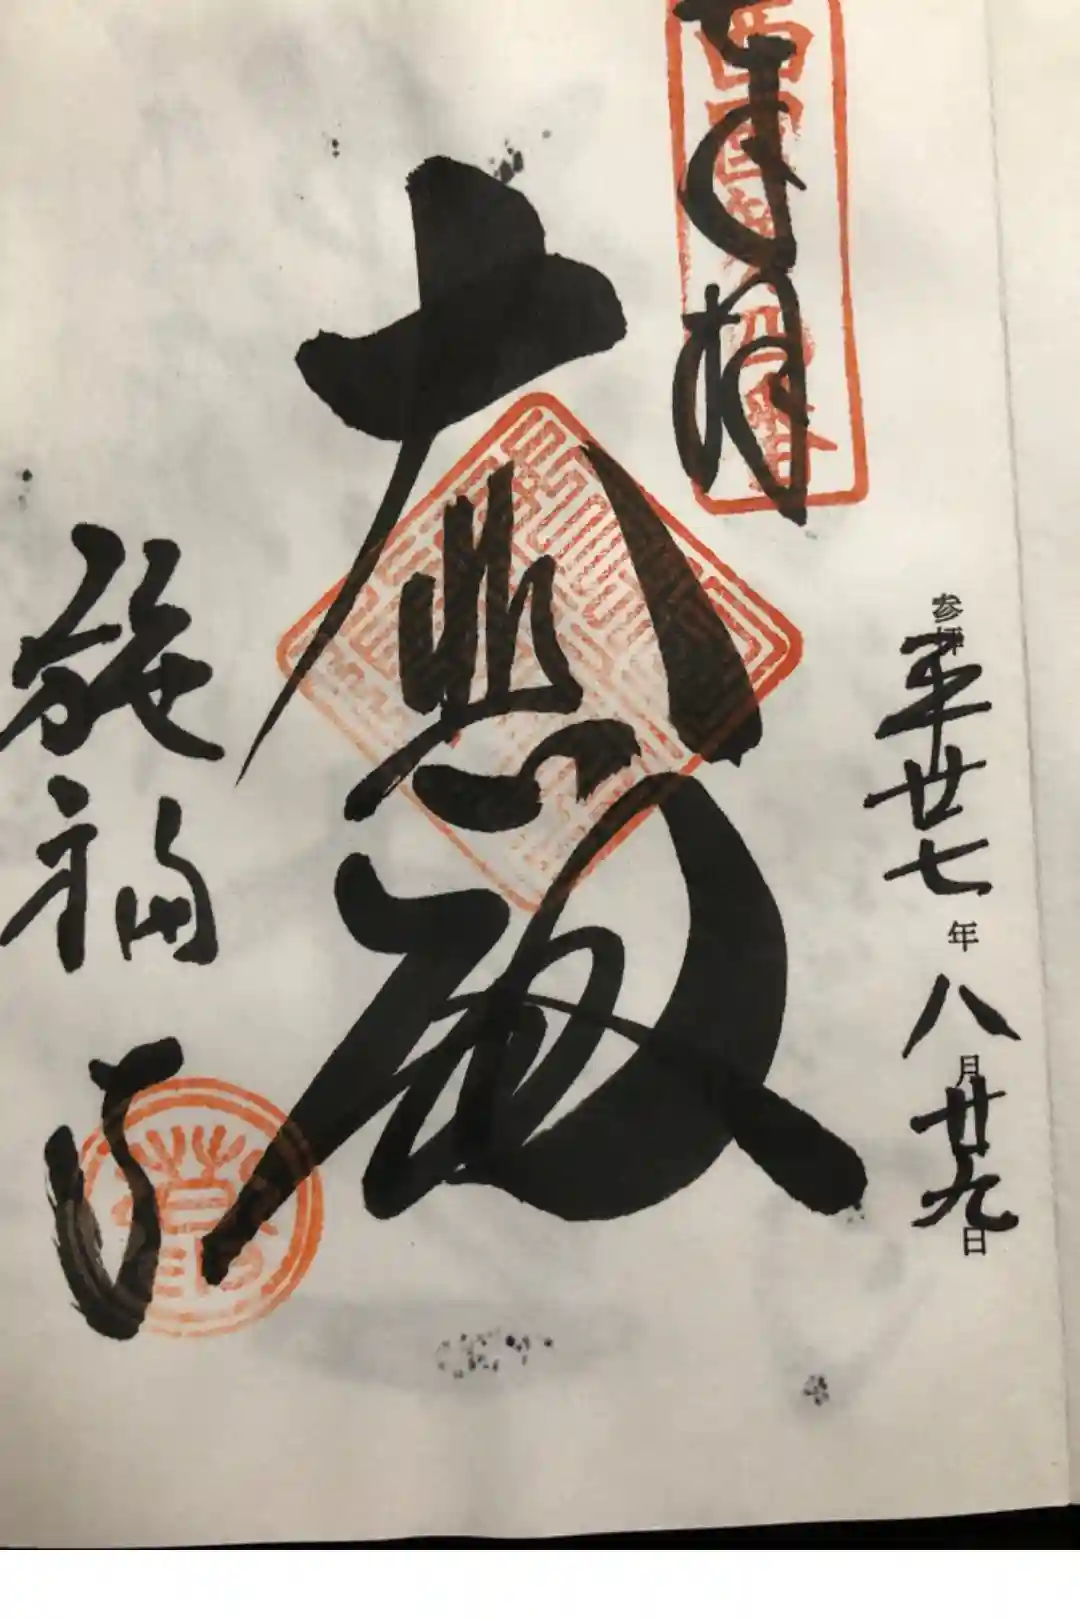 奉拝
西国
参拝 平廿七年八月廿九日
大悲殿
施福寺